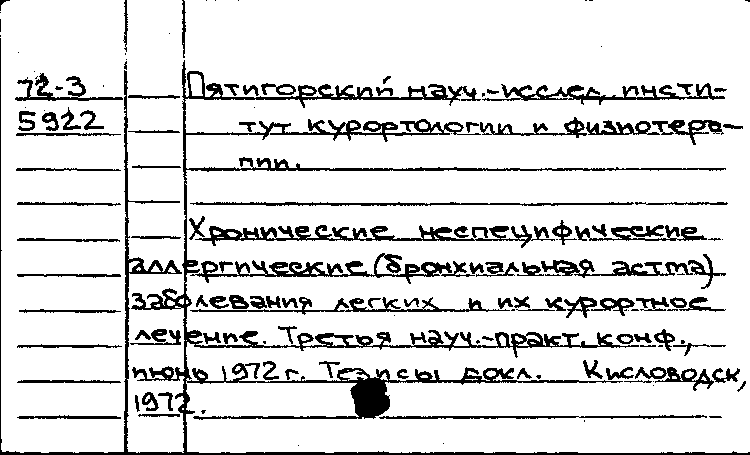 72-3 Пятигорский науч.-исслед. инсти-
5922 тут курортологии и физиотера-
пии.
Хронические неспецифические
аллергические (бронхиальная астма)
заболевания легких и их курортное
лечение. Третья науч.-практ. конф.,
июнь 1972 г. Тезисы докл. Кисловодск,
1972.